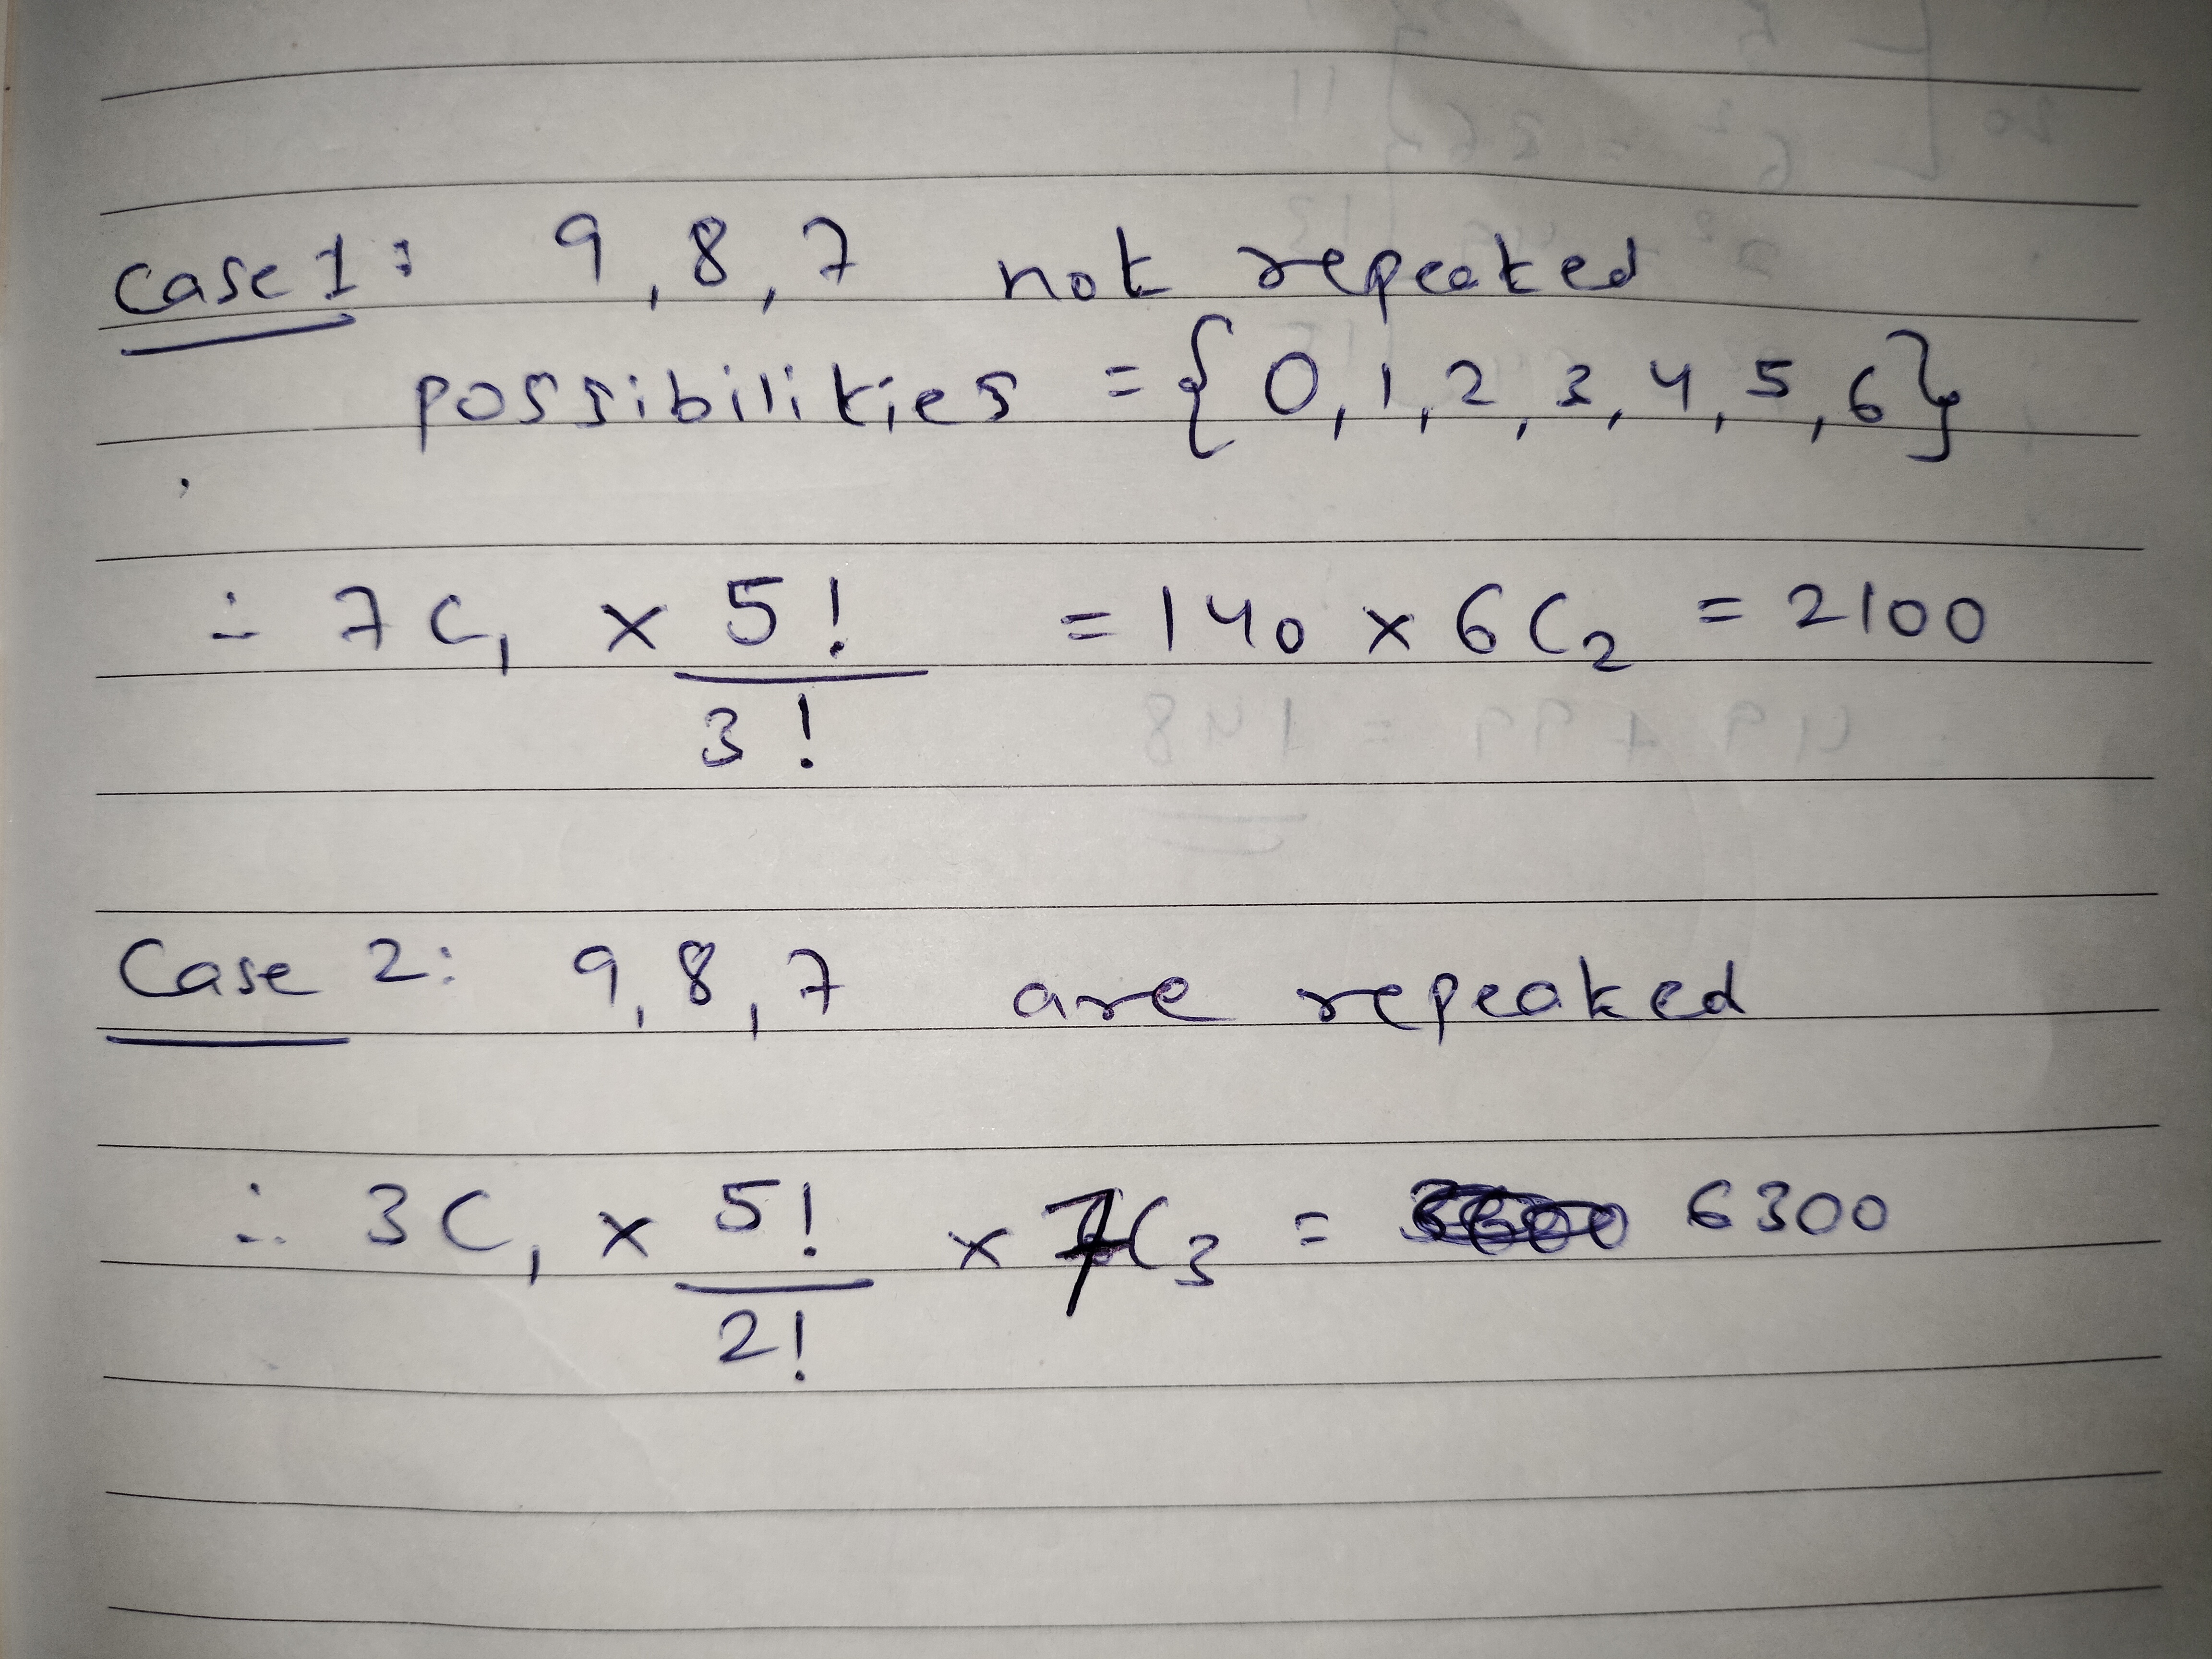 Case 1: 9, 8, 7 not repeated
possibilities = {0, 1, 2, 3, 4, 5, 6}
∴ 7C₁ × 5!/3! = 140 × 6C₂ = 2100
Case 2: 9, 8, 7 are repeated
∴ 3C₁ × 5!/2! × 7C₃ = 6300